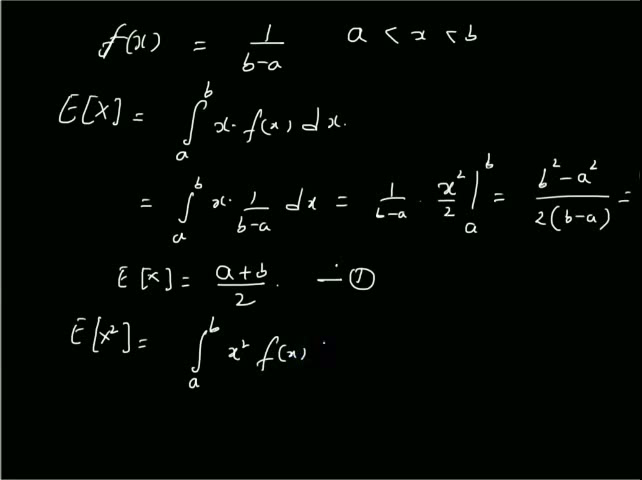 f(x) = 1/(b-a)   a < x < b
E[X] = ∫_a^b x. f(x) dx.
= ∫_a^b x . 1/(b-a) dx = 1/(b-a) . x²/2 |_a^b = (b² - a²)/(2(b-a)) =
E[X] = (a+b)/2 . — ①
E[X²] = ∫_a^b x² f(x)